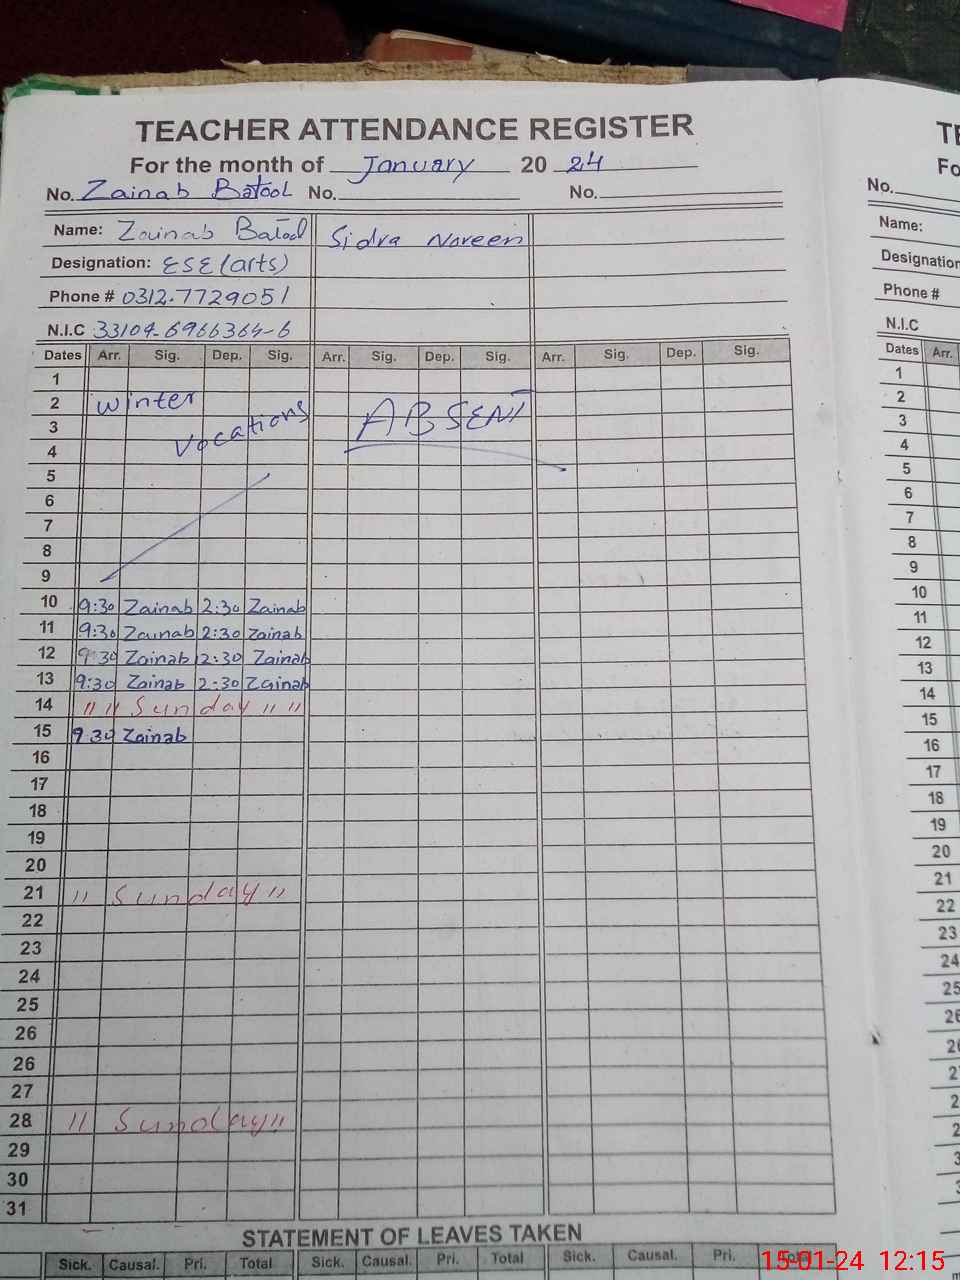 TEACHER ATTENDANCE REGISTER
For the month of January 2024
No. Zainab Batool No. No.
Name: Zainab Batool Sidra Noreen
Designation: ESE (arts)
Phone # 0312-7729051
N.I.C 33104-6966364-6
Dates Arr. Sig. Dep. Sig. Arr. Sig. Dep. Sig. Arr. Sig. Dep. Sig.
1
2 Winter ABSENT
3 Vocations
4
5
6
7
8
9
10 9:30 Zainab 2:30 Zainab
11 9:30 Zainab 2:30 Zainab
12 9 30 Zainab 2:30 Zainab
13 9:30 Zainab 2:30 Zainab
14 " " Sunday " "
15 9 30 Zainab
16
17
18
19
20
21 " Sunday "
22
23
24
25
26
26
27
28 " Sunday "
29
30
31
STATEMENT OF LEAVES TAKEN
Sick. Causal. Pri. Total Sick. Causal. Pri. Total Sick. Causal. Pri.
No.
Name:
Designation
Phone #
N.I.C
Dates Arr.
1
2
3
4
5
6
7
8
9
10
11
12
13
14
15
16
17
18
19
20
21
22
23
24
25
15-01-24 12:15